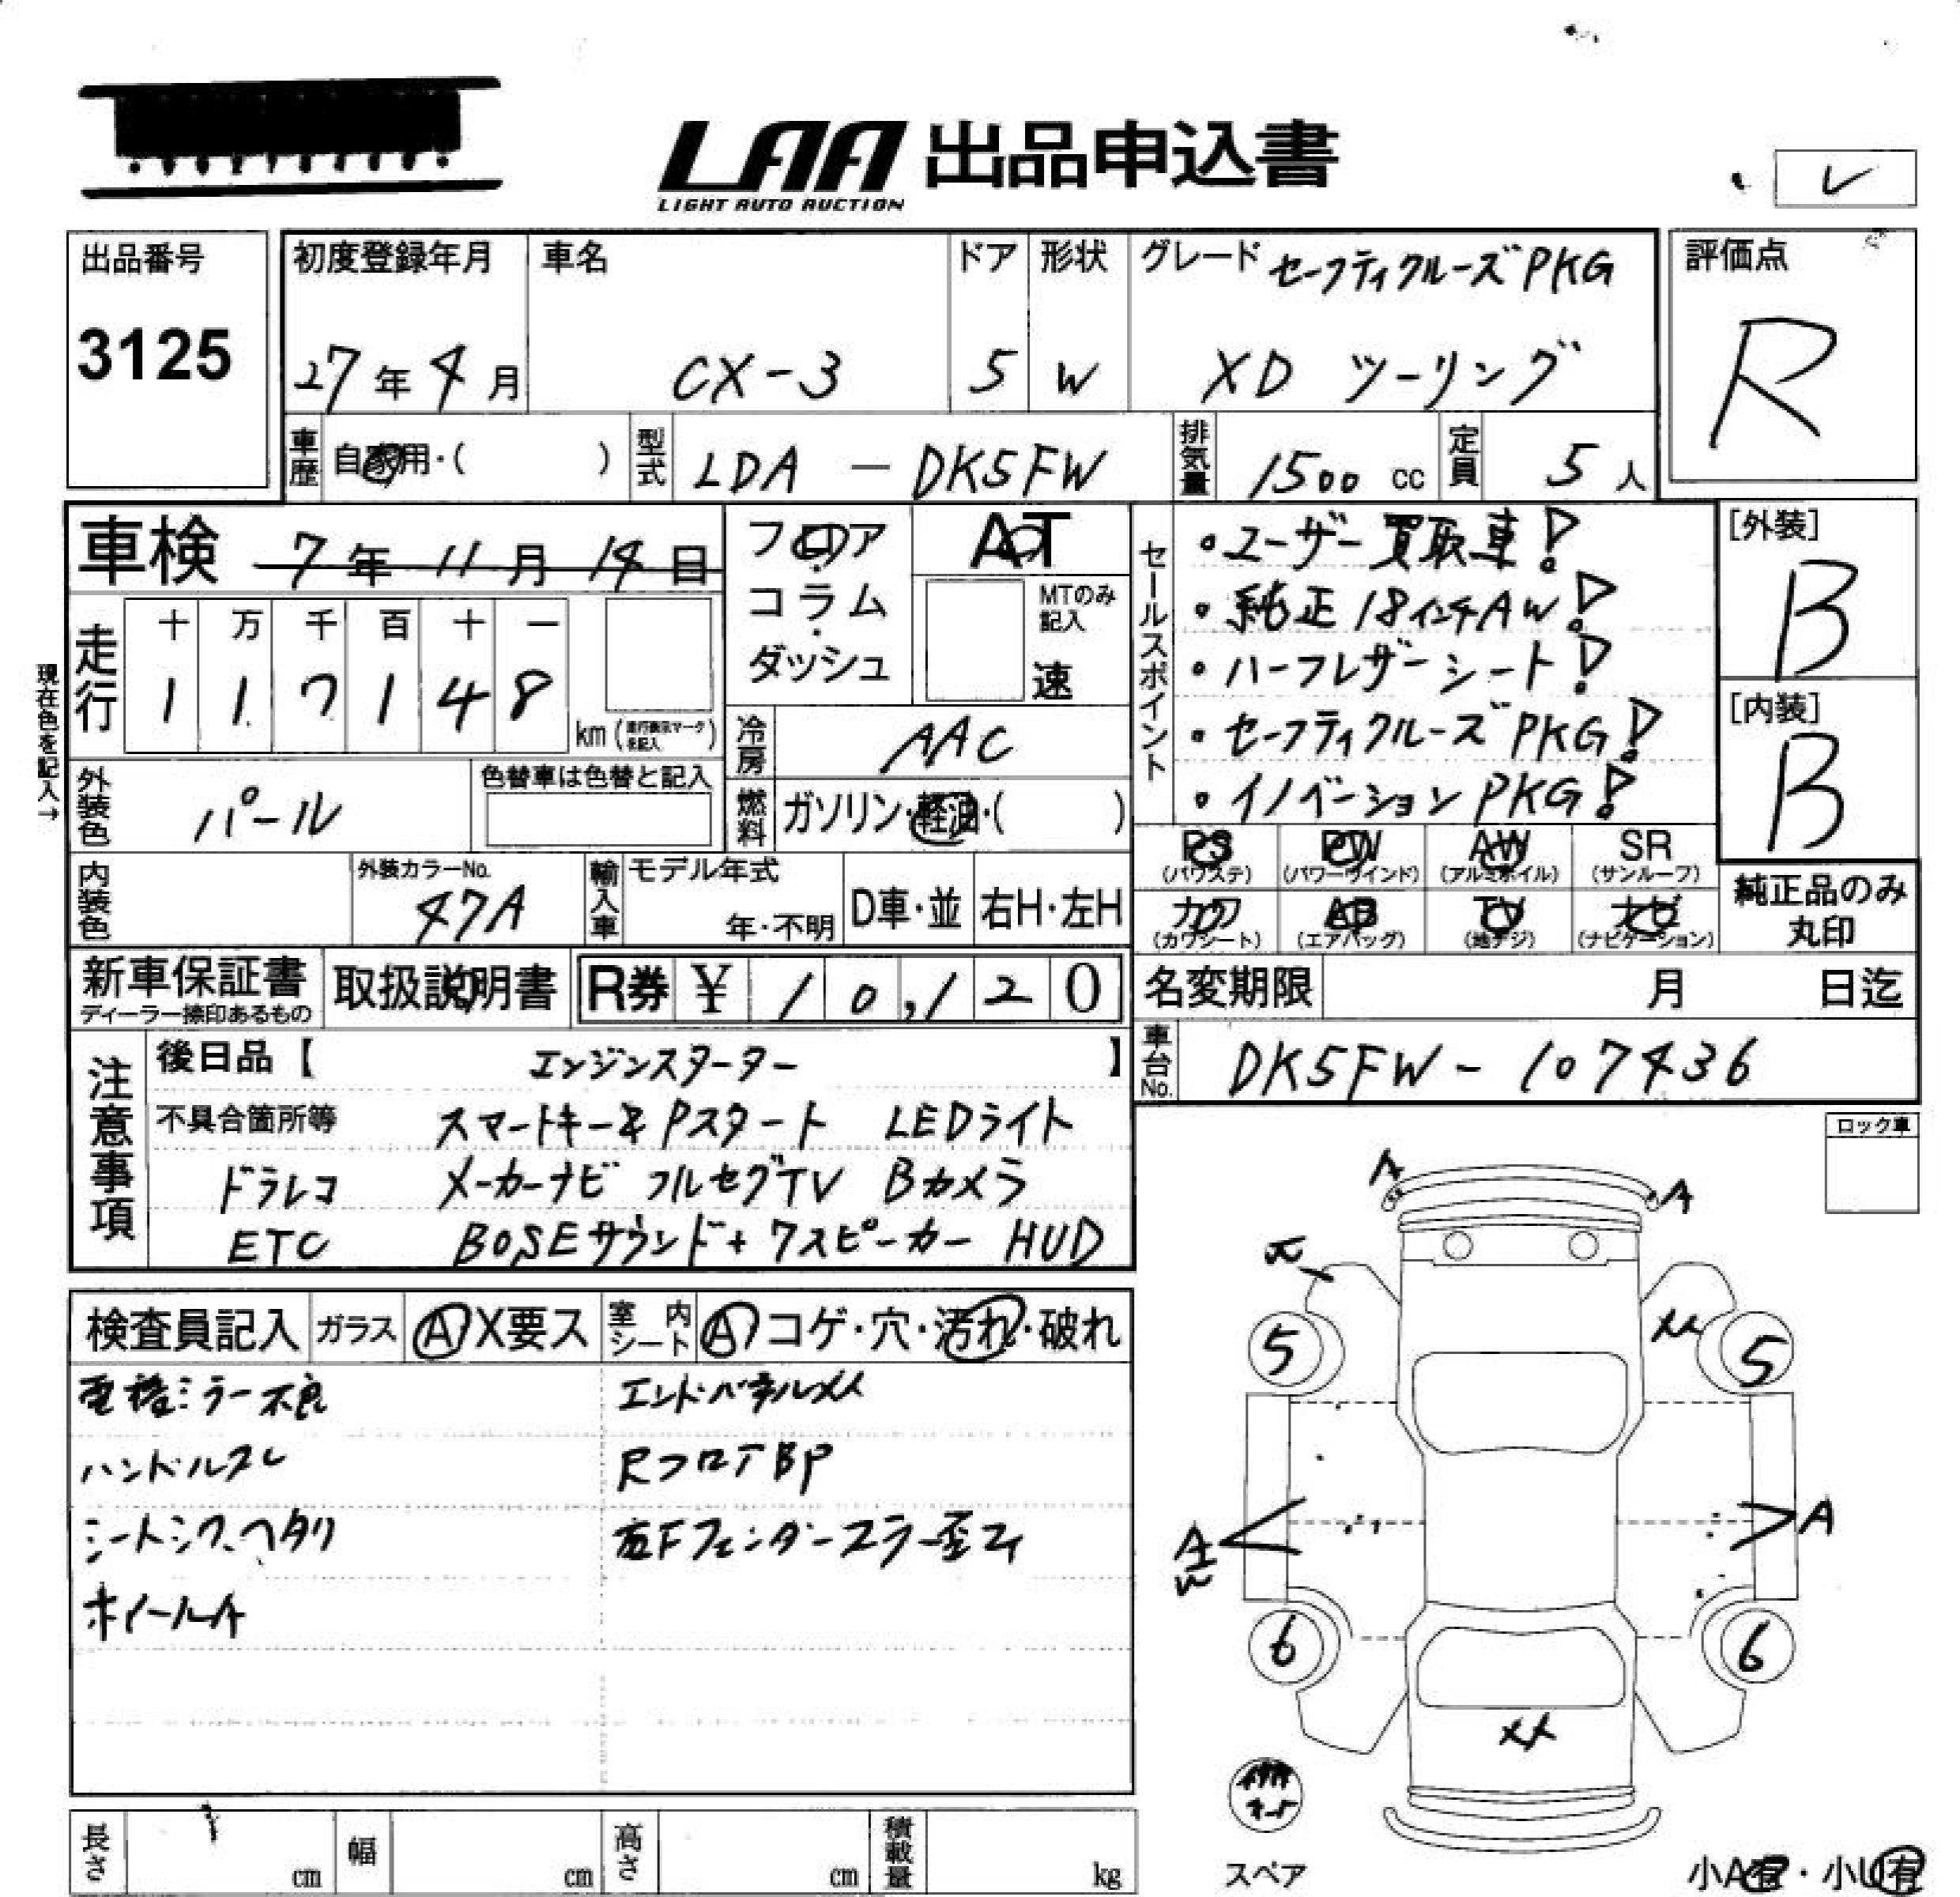 LAA 出品申込書
LIGHT AUTO AUCTION
レ
出品番号
3125
初度登録年月
27年4月
車名
CX-3
ドア
5
形状
W
グレード セーフティクルーズPKG
XD ツーリング
評価点
R
車歴 自家用・( )
型式 LDA - DK5FW
排気量 1500 cc
定員 5人
車検 7年11月14日
フロア・コラム・ダッシュ
AT
MTのみ記入
速
現在色を記入→
走行
十 万 千 百 十 一
1 1 7 1 4 8
km (走行表示マークを記入)
冷房 AAC
外装色 パール
色替車は色替と記入
燃料 ガソリン・軽油・( )
内装色
外装カラーNo.
47A
輸入車 モデル年式
年・不明
D車・並
右H・左H
セールスポイント
・ユーザー買取車!
・純正18インチAW!
・ハーフレザーシート!
・セーフティクルーズPKG!
・イノベーションPKG!
[外装]
B
[内装]
B
PS (パワステ)
PW (パワーウインド)
AW (アルミホイル)
SR (サンルーフ)
カワ (カワシート)
AB (エアバッグ)
TV (地デジ)
ナビ (ナビゲーション)
純正品のみ丸印
新車保証書
ディーラー捺印あるもの
取扱説明書
R券 ¥ 10,120
名変期限 月 日迄
車台No. DK5FW-107436
注意事項
後日品【 エンジンスターター 】
不具合箇所等 スマートキー&Pスタート LEDライト
ドラレコ メーカーナビ フルセグTV Bカメラ
ETC BOSEサウンド+7スピーカー HUD
ロック車
検査員記入
ガラス A X要ス
室内シート A コゲ・穴・汚れ・破れ
電格ミラー不良
ハンドルスレ
シートシワ、ヘタリ
ホイールA
エンドパネルメメ
RフロアBP
右Fフェンダーステー歪ミ
A
A
5
5
A
W
A
6
6
スペア
長さ cm
幅 cm
高さ cm
積載量 kg
小A有・小U有